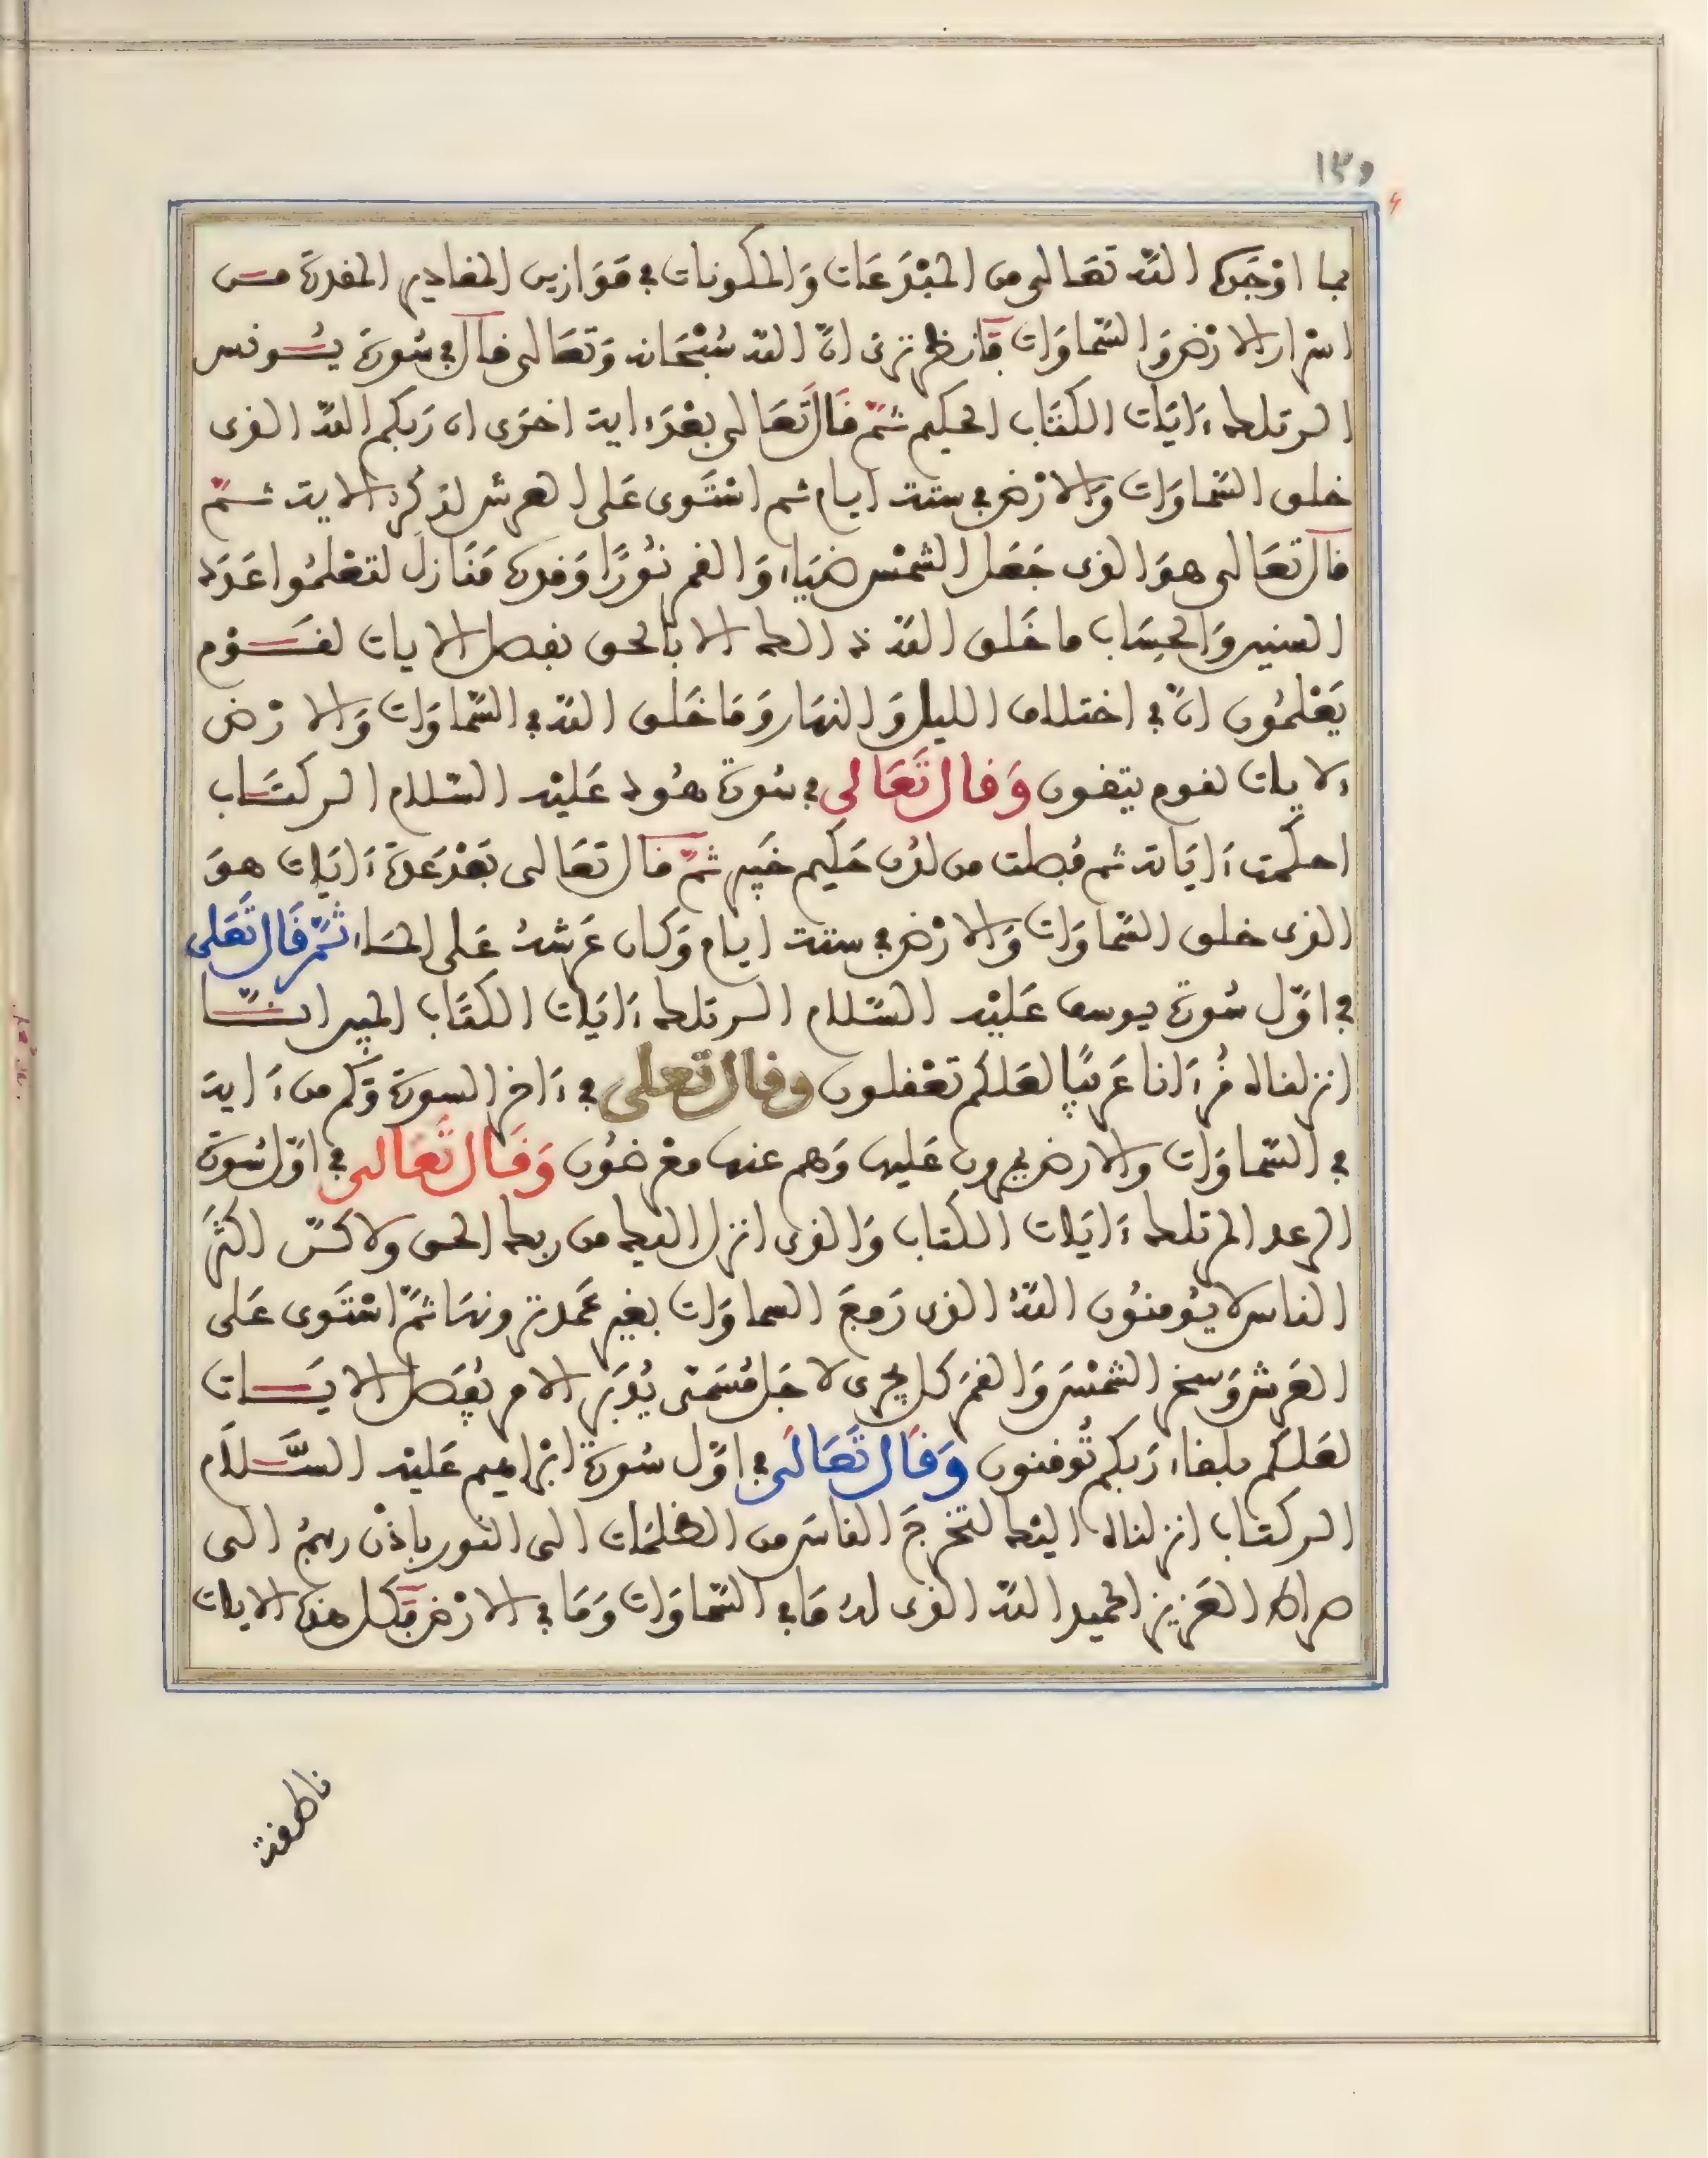 ١٣٥
بما اوْجَده اللّه تعَالى من المبْدَعَات وَالمكونات في مَوَازين المقادير المقدرة من
اسْرار الارْض وَالسّماوَات فانظر ترى انّ اللّه سُبْحَانه وَتعَالى قال في سُورة يُونس
الر تلك ءَايَات الكتَاب الحكيم ثمّ قَالَ تَعَالى بعْدَ ءاية اخرَى ان رَبكم اللّه الذى
خلق السّماوَات وَالارْض في ستة ايام ثم اسْتَوى عَلى العرش لذكره الاية ثمّ
قال تعَالى هوَ الذى جَعَل الشمْس ضيَاء وَالقمر نُورًا وَقدره مَنَازل لتعْلمُوا عَدَد
السنين وَالحِسَاب ما خَلق اللّه ذالك الا بالحق نفصل الايات لقَوْم
يَعْلمُون انّ في اختلاف الليل وَالنهَار وَمَا خَلق اللّه في السّماوَات وَالارْض
لايات لقوم يتقون وَقال تَعَالى في سُورة هُود عَليْه السّلام الر كتَاب
احكمت ءَايَاته ثم فُصلت من لدُن حَكيم خَبير ثمّ قال تعَالى بَعْدَ عدة ءَايَات هوَ
الذى خلق السّماوَات وَالارْض في ستة ايام وَكان عَرشهُ عَلى المَاء ثمّ قَال تَعَلى
في اوّل سُورة يوسف عَليْه السّلام الر تلك ءَايَات الكتَاب المبين انّا
انزلناه قُرءَانا عَربيًّا لعَلكم تعْقلون وقال تعلى في ءَاخر السورة وَكم من ءَاية
في السّماوَات والارض يمرون عَليها وَهم عنها معْرضُون وَقَال تَعَالى في اوّل سُورة
الرعد المر تلك ءَايَات الكتاب وَالذى انزل اليك من ربك الحق ولاكنّ اكثرَ
الناس لا يُومنُون اللّهُ الذى رَفعَ السماوَات بغير عَمَد ترونهَا ثمّ اسْتَوى عَلى
العَرش وَسخر الشمْسَ وَالقمَر كل يجرى لاجَل مُسَمّى يُدَبّر الامر يُفصّل الايَات
لعَلكم بلقاء رَبكم تُوقنون وَقَال تَعَالى في اوّل سُورة ابْراهيم عَليْه السَّلَام
الر كتاب انزلناه اليْك لتخرجَ الناسَ من الظلمَات الى النور باذْن ربهمُ الى
صراط العَزيز الحميد اللّه الذى لهُ مَا في السّمَاوَات وَمَا في الارْض فكل هذه الايات
ناطقة